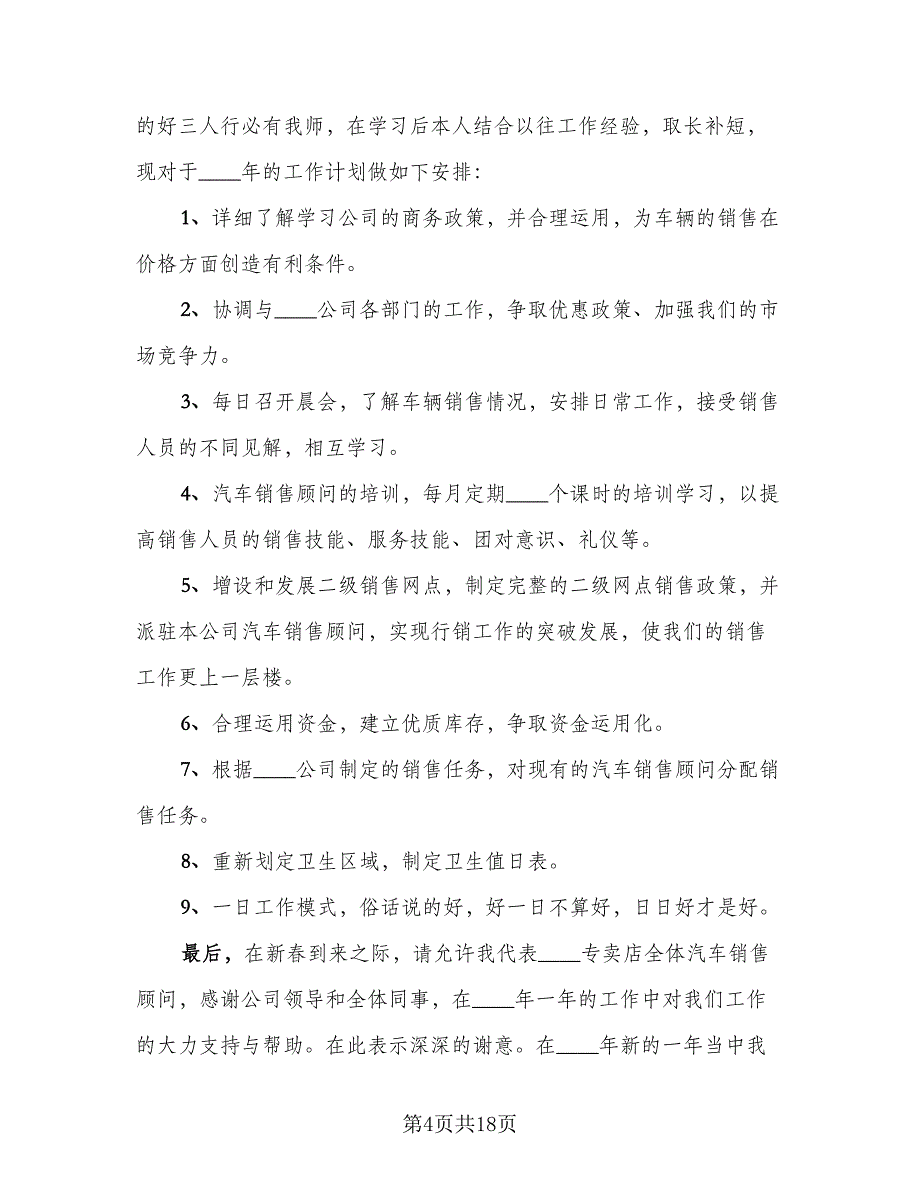 的好三人行必有我师，在学习后本人结合以往工作经验，取长补短，
现对于____年的工作计划做如下安排：
1、详细了解学习公司的商务政策，并合理运用，为车辆的销售在
价格方面创造有利条件。
2、协调与____公司各部门的工作，争取优惠政策、加强我们的市
场竞争力。
3、每日召开晨会，了解车辆销售情况，安排日常工作，接受销售
人员的不同见解，相互学习。
4、汽车销售顾问的培训，每月定期____个课时的培训学习，以提
高销售人员的销售技能、服务技能、团对意识、礼仪等。
5、增设和发展二级销售网点，制定完整的二级网点销售政策，并
派驻本公司汽车销售顾问，实现行销工作的突破发展，使我们的销售
工作更上一层楼。
6、合理运用资金，建立优质库存，争取资金运用化。
7、根据____公司制定的销售任务，对现有的汽车销售顾问分配销
售任务。
8、重新划定卫生区域，制定卫生值日表。
9、一日工作模式，俗话说的好，好一日不算好，日日好才是好。
最后，在新春到来之际，请允许我代表____专卖店全体汽车销售
顾问，感谢公司领导和全体同事，在____年一年的工作中对我们工作
的大力支持与帮助。在此表示深深的谢意。在____年新的一年当中我
第4页共18页